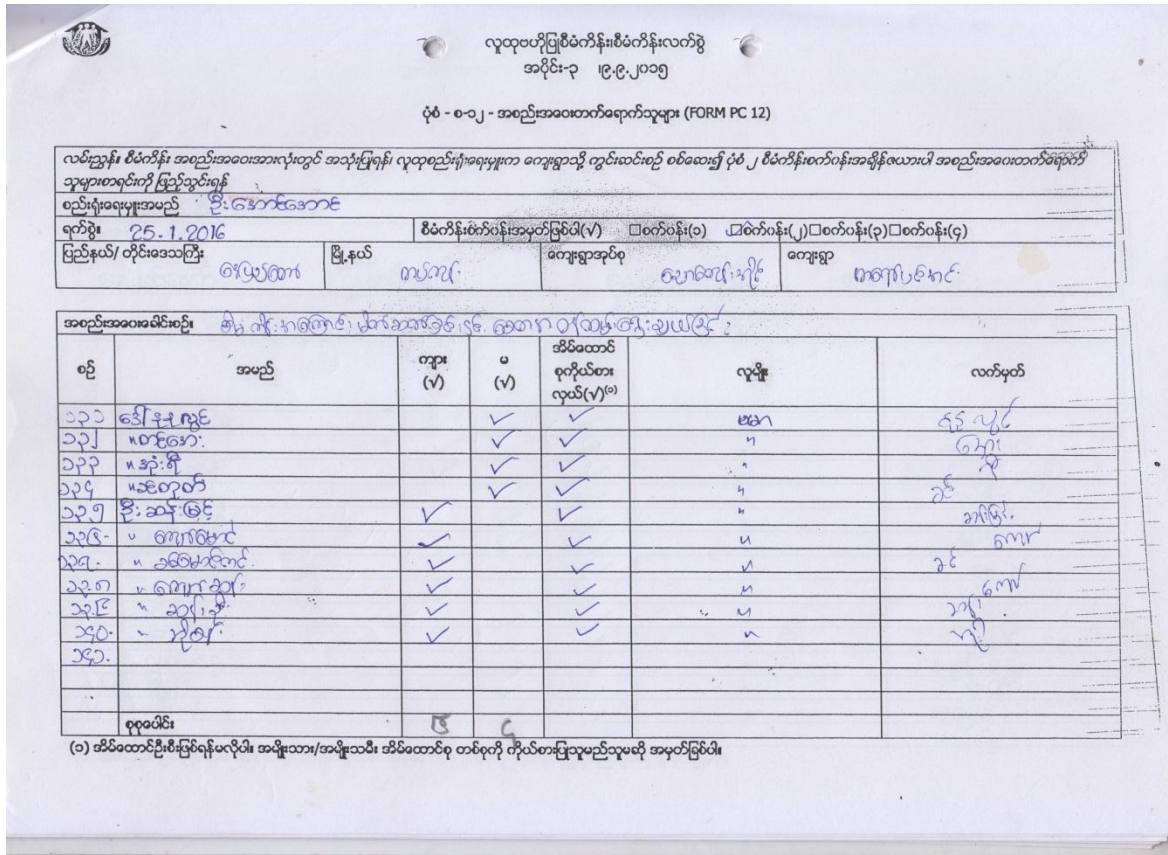 လူထုဗဟိုပြုစီမံကိန်း၊စီမံကိန်းလက်စွဲ
အပိုင်း-၃ ၊၉.၉.၂၀၁၅
ပုံစံ - စ-၁၂ - အစည်းအဝေးတက်ရောက်သူများ (FORM PC 12)
လမ်းညွှန်။ စီမံကိန်း အစည်းအဝေးအားလုံးတွင် အသုံးပြုရန်၊ လူထုစည်းရုံးရေးမှူးက ကျေးရွာသို့ ကွင်းဆင်းစဉ် စစ်ဆေး၍ ပုံစံ ၂ စီမံကိန်းစက်ဝန်းအချိန်ဇယားပါ အစည်းအဝေးတက်ရောက်
သူများစာရင်းကို ဖြည့်သွင်းရန်
စည်းရုံးရေးမှူးအမည် ဦးအောင်အောင်
ရက်စွဲ။ 25.1.2016 စီမံကိန်းစက်ဝန်းအမှတ်ခြစ်ပါ(√) □စက်ဝန်း(၁) □စက်ဝန်း(၂)□စက်ဝန်း(၃)□စက်ဝန်း(၄)
ပြည်နယ်/ တိုင်းဒေသကြီး မြို့နယ် ကျေးရွာအုပ်စု ကျေးရွာ
အစည်းအဝေးခေါင်းစဉ်။ စီမံကိန်းအကြောင်း မိတ်ဆက်ခြင်းနှင့် စေတနာ့ဝန်ထမ်းရွေးချယ်ခြင်း
စဉ် အမည် ကျား (√) မ (√) အိမ်ထောင်စုကိုယ်စားလှယ်(√)⁽¹⁾ လူမျိုး လက်မှတ်
၁၃၁ ဒေါ်နုနုလွင် ✓ ✓ ဗမာ နုနုလွင်
၁၃၂ " တင်အေး ✓ ✓ "
၁၃၃ " အုံးရီ ✓ ✓ "
၁၃၄ " ✓ ✓ "
၁၃၅ ဦးဆန်းမြင့် ✓ ✓ " ဆန်းမြင့်
၁၃၆. " ကျော်မောင် ✓ ✓ " ကျော်
၁၃၇. " ခင်မောင်တင် ✓ ✓ " ခင်
၁၃၈ " ကျော်ဆန်း ✓ ✓ " ကျော်
၁၃၉ " ✓ ✓ "
၁၄၀. " ✓ ✓ "
၁၄၁.
စုစုပေါင်း ၆ ၄
(၁) အိမ်ထောင်ဦးစီးဖြစ်ရန်မလိုပါ။ အမျိုးသား/အမျိုးသမီး အိမ်ထောင်စု တစ်စုကို ကိုယ်စားပြုသူမည်သူမဆို အမှတ်ခြစ်ပါ။